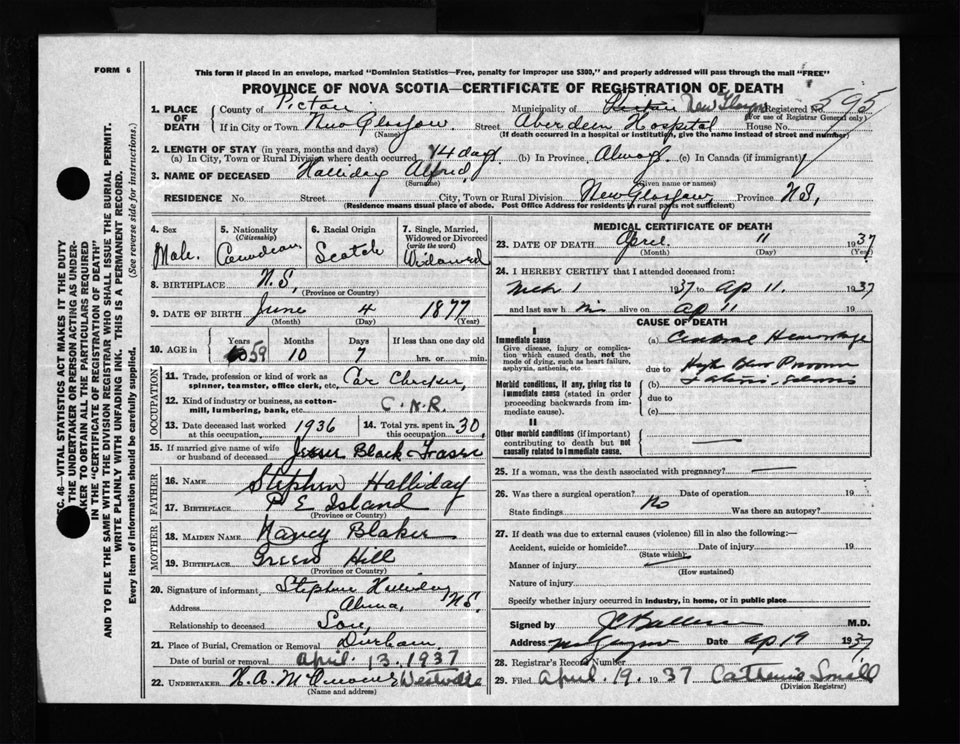 FORM 6
This form if placed in an envelope, marked "Dominion Statistics—Free, penalty for improper use $300," and properly addressed will pass through the mail "FREE"
PROVINCE OF NOVA SCOTIA—CERTIFICATE OF REGISTRATION OF DEATH
1. PLACE OF DEATH County of Pictou Municipality of Pictou New Glasgow Registered No. 595
(For use of Registrar General only)
If in City or Town New Glasgow (Name) Street Aberdeen Hospital House No.
(If death occurred in a hospital or institution, give the name instead of street and number)
2. LENGTH OF STAY (in years, months and days)
(a) In City, Town or Rural Division where death occurred 14 days (b) In Province Always (c) In Canada (if immigrant)
3. NAME OF DECEASED Halliday Alfred
(Surname) (Given name or names)
RESIDENCE No. Street City, Town or Rural Division New Glasgow, Province N.S.
(Residence means usual place of abode. Post Office Address for residents in rural parts not sufficient)
4. Sex Male.
5. Nationality (Citizenship) Canadian
6. Racial Origin Scotch
7. Single, Married, Widowed or Divorced (write the word) Widowed
8. BIRTHPLACE N.S.
(Province or Country)
9. DATE OF BIRTH June 4 1877
(Month) (Day) (Year)
10. AGE in Years 59 Months 10 Days 7 If less than one day old hrs. or min.
OCCUPATION
11. Trade, profession or kind of work as spinner, teamster, office clerk, etc. Car Checker,
12. Kind of industry or business, as cotton-mill, lumbering, bank, etc. C.N.R.
13. Date deceased last worked at this occupation 1936
14. Total yrs. spent in this occupation 30
15. If married give name of wife or husband of deceased Black Fraser
FATHER
16. NAME Stephen Halliday
17. BIRTHPLACE P E Island
(Province or Country)
MOTHER
18. MAIDEN NAME Nancy Blaker
19. BIRTHPLACE Green Hill
(Province or Country)
20. Signature of informant Stephen Halliday
Address Alma, N.S.
Relationship to deceased Son,
21. Place of Burial, Cremation or Removal Durham
Date of burial or removal April 13, 1937
22. UNDERTAKER Westville
(Name and address)
MEDICAL CERTIFICATE OF DEATH
23. DATE OF DEATH April 11 1937
(Month) (Day) (Year)
24. I HEREBY CERTIFY that I attended deceased from
Mch 1 1937 to Ap 11. 1937
and last saw h im alive on Ap 11 19
CAUSE OF DEATH
I
Immediate cause
Give disease, injury or complication which caused death, not the mode of dying, such as heart failure, asphyxia, asthenia, etc.
(a) Cerebral Hemorrhage
due to
Morbid conditions, if any, giving rise to immediate cause (stated in order proceeding backwards from immediate cause).
(b) High Blood Pressure
due to
(c)
II
Other morbid conditions (if important) contributing to death but not causally related to immediate cause.
25. If a woman, was the death associated with pregnancy?
26. Was there a surgical operation? No Date of operation 19
State findings Was there an autopsy?
27. If death was due to external causes (violence) fill in also the following:—
Accident, suicide or homicide? Date of injury 19
(State which)
Manner of injury
(How sustained)
Nature of injury
Specify whether injury occurred in industry, in home, or in public place
Signed by M.D.
Address Date Ap 19 1937
28. Registrar's Record Number
29. Filed April 19, 1937
(Division Registrar)
SEC. 46—VITAL STATISTICS ACT MAKES IT THE DUTY
OF THE UNDERTAKER OR PERSON ACTING AS UNDER-
TAKER TO OBTAIN ALL THE PARTICULARS REQUIRED
IN THE "CERTIFICATE OF REGISTRATION OF DEATH"
AND TO FILE THE SAME WITH THE DIVISION REGISTRAR WHO SHALL ISSUE THE BURIAL PERMIT.
WRITE PLAINLY WITH UNFADING INK. THIS IS A PERMANENT RECORD.
Every item of information should be carefully supplied. (See reverse side for instructions.)